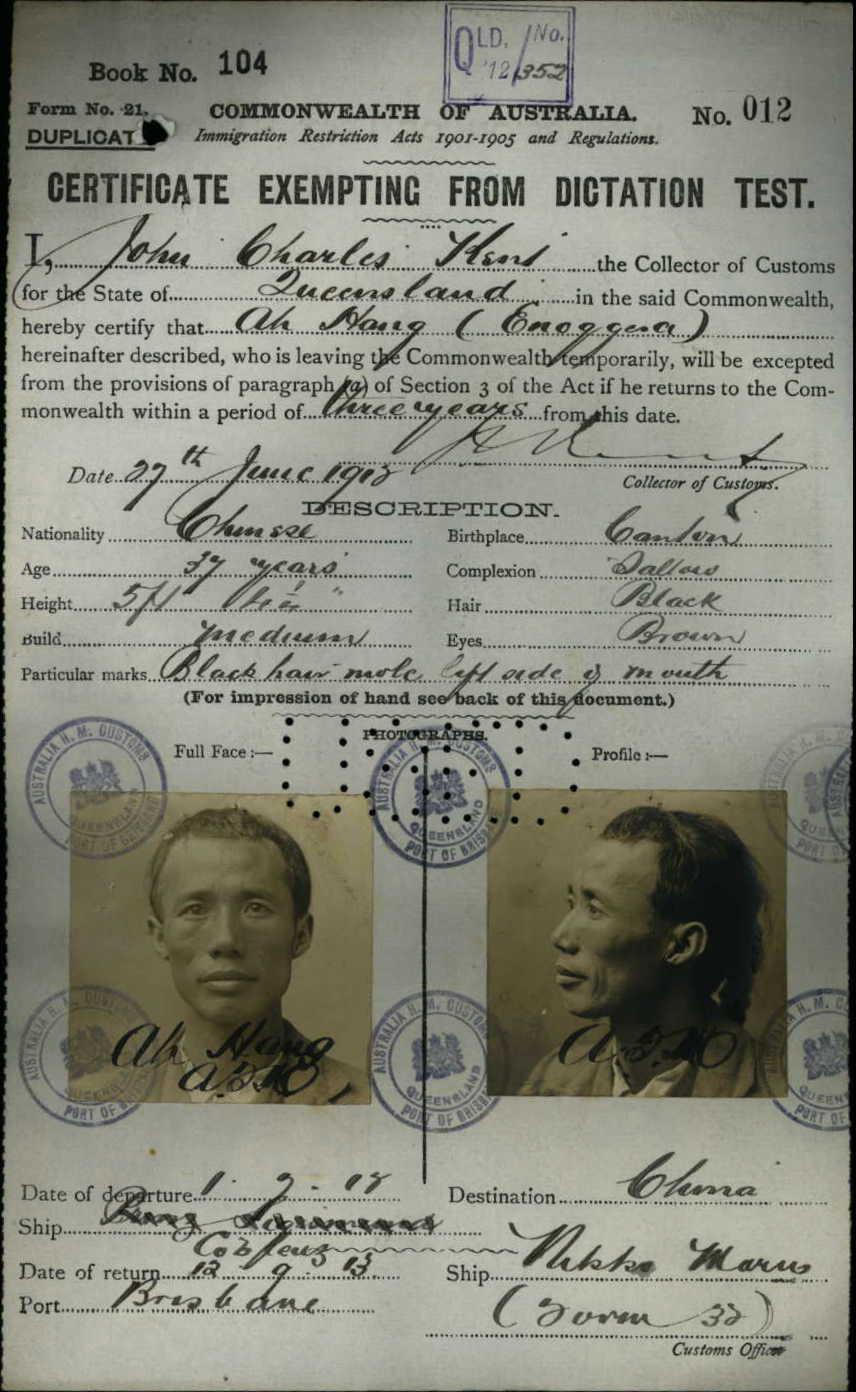 QLD. / No.
'12/352
Book No. 104
Form No. 21.
COMMONWEALTH OF AUSTRALIA.
No. 012
DUPLICAT
Immigration Restriction Acts 1901-1905 and Regulations.
CERTIFICATE EXEMPTING FROM DICTATION TEST.
I, John Charles Kent the Collector of Customs
for the State of Queensland in the said Commonwealth,
hereby certify that Ah Hang (Enoggera)
hereinafter described, who is leaving the Commonwealth temporarily, will be excepted
from the provisions of paragraph (a) of Section 3 of the Act if he returns to the Com-
monwealth within a period of three years from this date.
Date 27th June 1912
Collector of Customs.
DESCRIPTION.
Nationality Chinese
Birthplace Canton
Age 37 years
Complexion Sallow
Height 5ft
Hair Black
Build medium
Eyes Brown
Particular marks Black hair mole left side of mouth
(For impression of hand see back of this document.)
PHOTOGRAPHS.
Full Face :—
Profile :—
AUSTRALIA H. M. CUSTOMS
QUEENSLAND
PORT OF BRISBANE
Ah Hang
Date of departure
Destination China
Ship
Coblenz
Date of return 12 9 13
Ship Nikko Maru
Port Brisbane
(Form 32)
Customs Officer